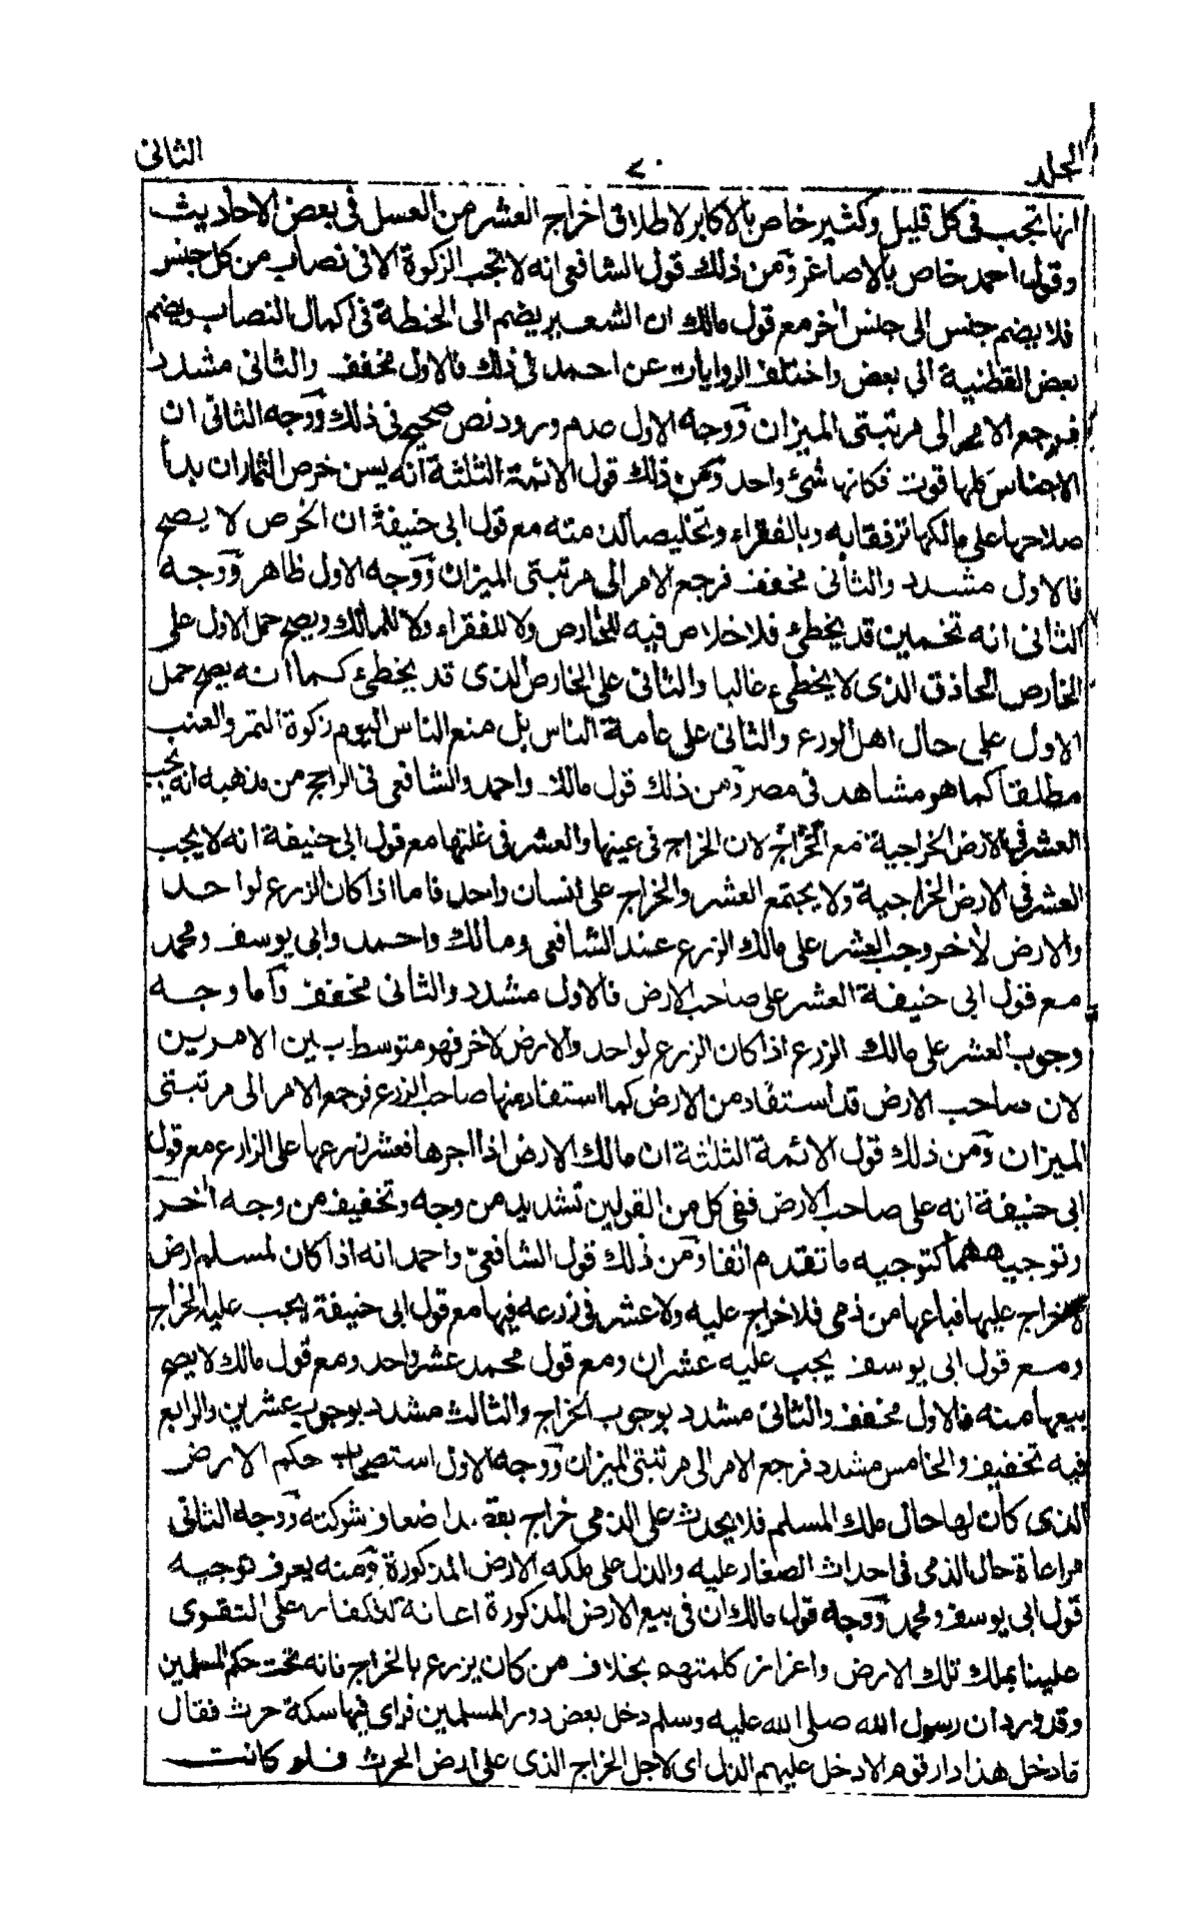 الجلد ٧٠ الثانى
انها تجب فى كل قليل وكثير خاص بالاكابر لاطلاق اخراج العشر من العسل فى بعض الاحاديث
وقول احمد خاص بالاصاغر ومن ذلك قول الشافعى انه لا تجب الزكوة الا فى نصاب من كل جنس
فلا يضم جنس الى جنس اخر مع قول مالك ان الشعير يضم الى الحنطة فى اكمال النصاب ويضم
بعض القطنية الى بعض واختلف الروايات عن احمد فى ذلك فالاول مخفف والثانى مشدد
فرجع الامر الى مرتبتى الميزان ووجه الاول عدم ورود نص صحيح فى ذلك ووجه الثانى ان
الاجناس كلها قوت فكانها شئ واحد ومن ذلك قول الائمة الثلثة انه يسن خرص الثمار ان بدأ
صلاحها على مالكها ترفقا به وبالفقراء وتخليصا لذمته مع قول ابى حنيفة ان الخرص لا يصح
فالاول مشدد والثانى مخفف فرجع الامر الى مرتبتى الميزان ووجه الاول ظاهر ووجه
الثانى انه تخمين قد يخطئ فلا خلاص فيه للخارص ولا للفقراء ولا للمالك ويصح حمل الاول على
الخارص الحاذق الذى لا يخطئ غالبا والثانى على الخارص الذى قد يخطئ كما انه يصح حمل
الاول على حال اهل الورع والثانى على عامة الناس بل منع الناس اليوم زكوة التمر والعنب
مطلقا كما هو مشاهد فى مصر ومن ذلك قول مالك واحمد والشافعى فى الراجح من مذهبه انه يجب
العشر فى الارض الخراجية مع الخراج لان الخراج فى عينها والعشر فى غلتها مع قول ابى حنيفة انه لا يجب
العشر فى الارض الخراجية ولا يجتمع العشر والخراج على انسان واحد فاما اذا كان الزرع لواحد
والارض لاخر وجب العشر على مالك الزرع عند الشافعى ومالك واحمد وابى يوسف ومحمد
مع قول ابى حنيفة العشر على صاحب الارض فالاول مشدد والثانى مخفف واما وجه
وجوب العشر على مالك الزرع اذا كان الزرع لواحد والارض لاخر فهو متوسط بين الامرين
لان صاحب الارض قد استفاد من الارض كما استفاد منها صاحب الزرع فرجع الامر الى مرتبتى
الميزان ومن ذلك قول الائمة الثلثة ان مالك الارض اذا اجرها فعشر زرعها على الزارع مع قول
ابى حنيفة انه على صاحب الارض ففى كل من القولين تشديد من وجه وتخفيف من وجه اخر
وتوجيههما كتوجيه ما تقدم انفا ومن ذلك قول الشافعى واحمد انه اذا كان لمسلم ارض
لاخراج عليها فباعها من ذمى فلا خراج عليه ولا عشر فى زرعه فيها مع قول ابى حنيفة يجب عليه الخراج
ومع قول ابى يوسف يجب عليه عشران ومع قول محمد عشر واحد ومع قول مالك لا يصح
بيعها منه فالاول مخفف والثانى مشدد بوجوب الخراج والثالث مشدد بوجوب عشرين والرابع
فيه تخفيف والخامس مشدد فرجع الامر الى مرتبتى الميزان ووجه الاول استصحاب حكم الارض
الذى كان لها حال ملك المسلم فلا يحدث على الذمى خراج بعد اضعاف شوكته ووجه الثانى
مراعاة حال الذمى فى احداث الصغار عليه والذل على ملكه الارض المذكورة ومنه يعرف توجيه
قول ابى يوسف ومحمد ووجه قول مالك ان فى بيع الارض المذكورة اعانة للكفار على التقوى
علينا بملك تلك الارض واعزاز كلمتهم بخلاف من كان يزرع بالخراج فانه تحت حكم المسلمين
وقد ورد ان رسول الله صلى الله عليه وسلم دخل بعض دور المسلمين فراى فيها سكة حرث فقال
ما دخل هذا دار قوم الا دخل عليهم الذل اى لاجل الخراج الذى على ارض الحرث فلو كانت